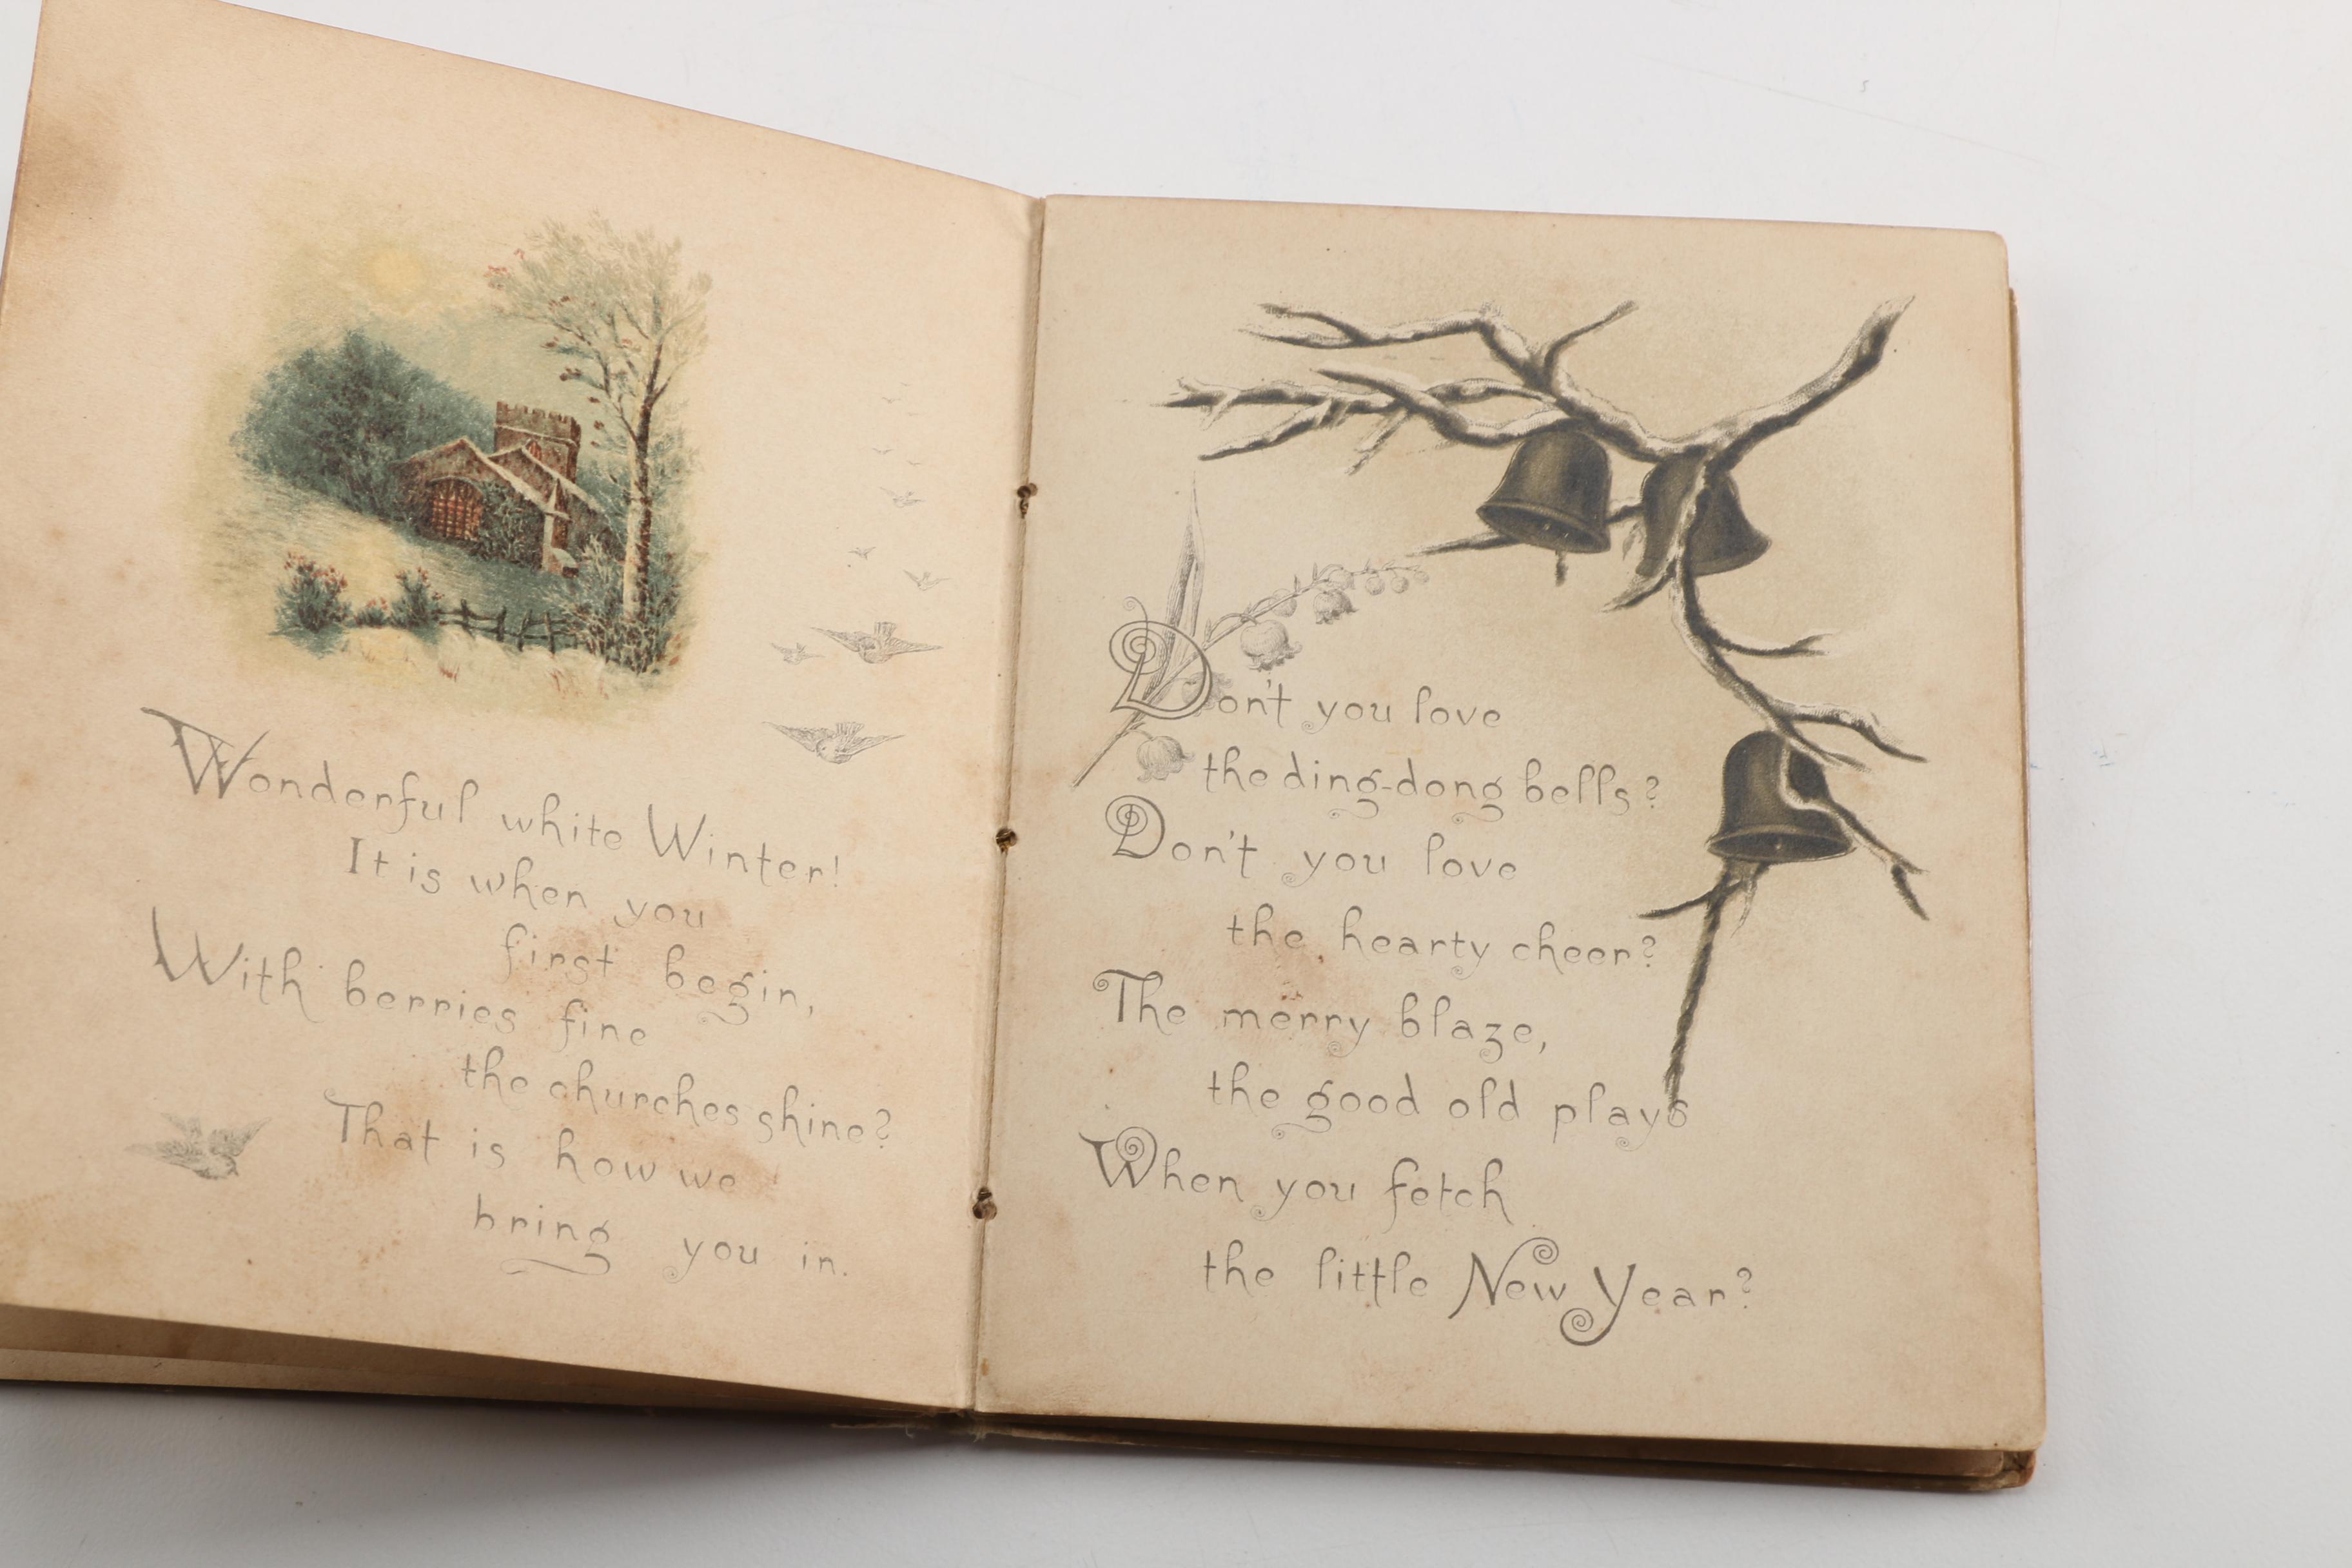 Wonderful white Winter!
It is when you
first begin,
With berries fine
the churches shine?
That is how we
bring you in.
Don't you love
the ding-dong bells?
Don't you love
the hearty cheer?
The merry blaze,
the good old plays
When you fetch
the little New Year?